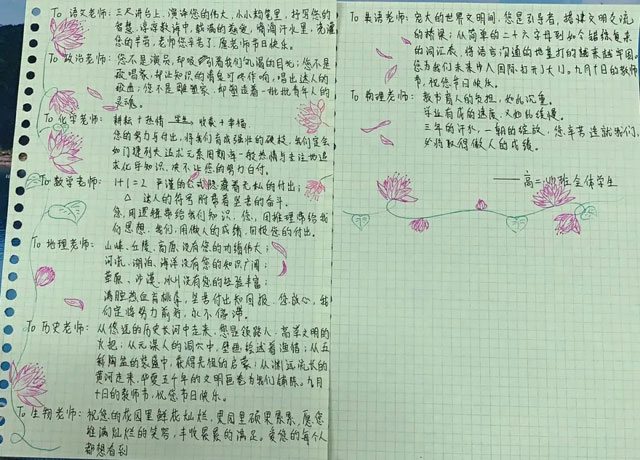 To 语文老师：三尺讲台上，演译您的伟大，小小钩笔里，抒写您的
智慧，谆谆教诲中，载满的热爱，滴滴汗水里，充满
您的辛苦，老师您辛苦了，愿老师节日快乐。
To 政治老师：您不是演员，却吸引着我们饥渴的目光；您不是
歌唱家，却让知识的清泉叮咚作响，唱出迷人的
歌曲；您不是雕塑家，却塑造着一批批青年人的
灵魂。
To 化学老师：耕耘+热情 = 收获+幸福
您的努力与付出，将我们有成强壮的硬核，我们定会
如门捷列夫追求元素周期律一般热情专注地追
求化学知识，决不让您的努力白付。
To 数学老师：1+1=2 严谨的公式隐藏着无私的付出；
△ 迷人的符号附带着坚苦的奋斗。
您，用逻辑带给我们知识，您，因推理带给我
们思想，我们，用做人的成绩，回报您的付出。
To 地理老师：山峰、丘陵、高原没有您的功绩伟大；
河流、湖泊、海洋没有您的知识广阔；
草原、沙漠、冰川没有您的经验丰富；
满腔热血育桃李，坚苦付出知回报，您放心，我
们定将努力前行，永不停滞。
To 历史老师：从悠远的历史长河中走来，您是领路人，高举文明的
火把；从元谋人的洞穴中，壁画绘述着迷惜；从五
彩陶盆的装盛中，获得先祖的启蒙；从渊远流长的
黄河走来，华夏五千年的文明画卷为我们铺陈。九月
十日的教师节，祝您节日快乐。
To 生物老师：祝您的花园里鲜花灿烂，果园里硕果累累，愿您
堆满灿烂的笑容，丰收累累的满足。爱您的每个人
都想看到
To 英语老师：宽大的世界文明间，您是引导者，搭建文明交流
的桥梁；从简单的二十六字母到如今错综复杂
的词汇表，将语言沟通的地基打的越来越牢固。
您为我们未来步入国际打开了大门。九月十日的教师
节，祝您节日快乐。
To 物理老师：教书育人的负担，如此沉重。
学业有成的速度，又如此缓慢。
三年的汗水，一朝的绽放，您辛苦造就我们，
必将取得做人的成绩。
——高二·四班全体学生